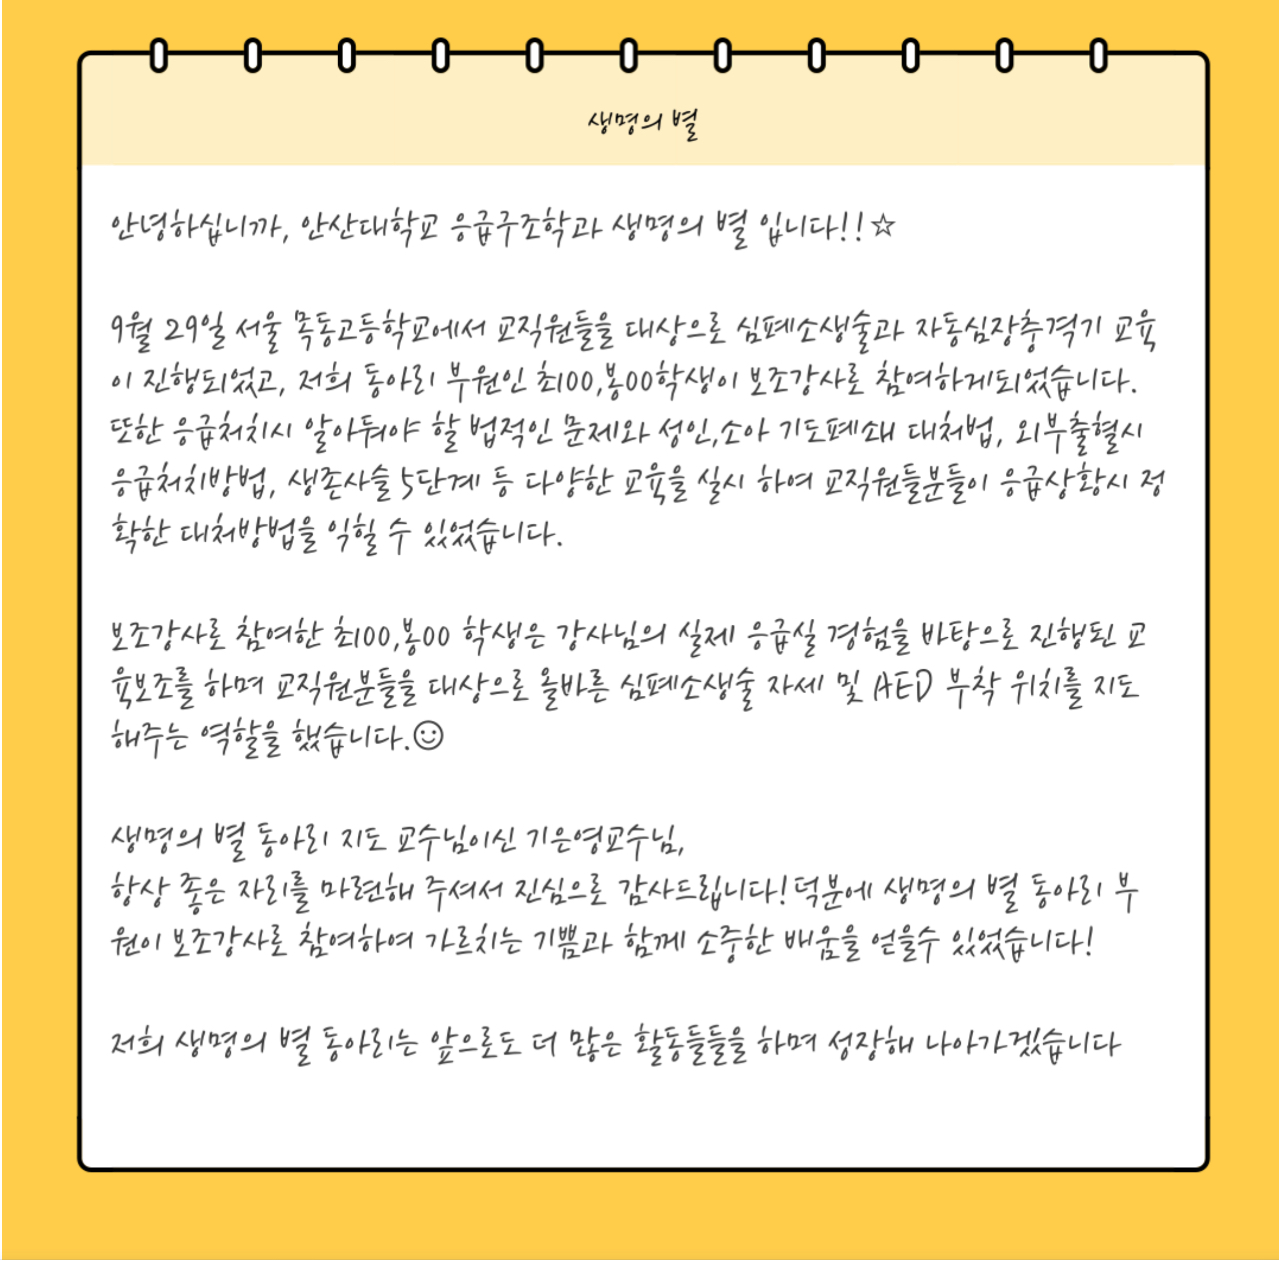 생명의 별
안녕하십니까, 안산대학교 응급구조학과 생명의 별 입니다!!☆
9월 29일 서울 목동고등학교에서 교직원들을 대상으로 심폐소생술과 자동심장충격기 교육
이 진행되었고, 저희 동아리 부원인 최00,봉00학생이 보조강사로 참여하게되었습니다.
또한 응급처치시 알아둬야 할 법적인 문제와 성인,소아 기도폐쇄 대처법, 외부출혈시
응급처치방법, 생존사슬 5단계 등 다양한 교육을 실시 하여 교직원들분들이 응급상황시 정
확한 대처방법을 익힐 수 있었습니다.
보조강사로 참여한 최00,봉00 학생은 강사님의 실제 응급실 경험을 바탕으로 진행된 교
육보조를 하며 교직원분들을 대상으로 올바른 심폐소생술 자세 및 AED 부착 위치를 지도
해주는 역할을 했습니다.☺
생명의 별 동아리 지도 교수님이신 기은영교수님,
항상 좋은 자리를 마련해 주셔서 진심으로 감사드립니다!덕분에 생명의 별 동아리 부
원이 보조강사로 참여하여 가르치는 기쁨과 함께 소중한 배움을 얻을수 있었습니다!
저희 생명의 별 동아리는 앞으로도 더 많은 활동들들을 하며 성장해 나아가겠습니다